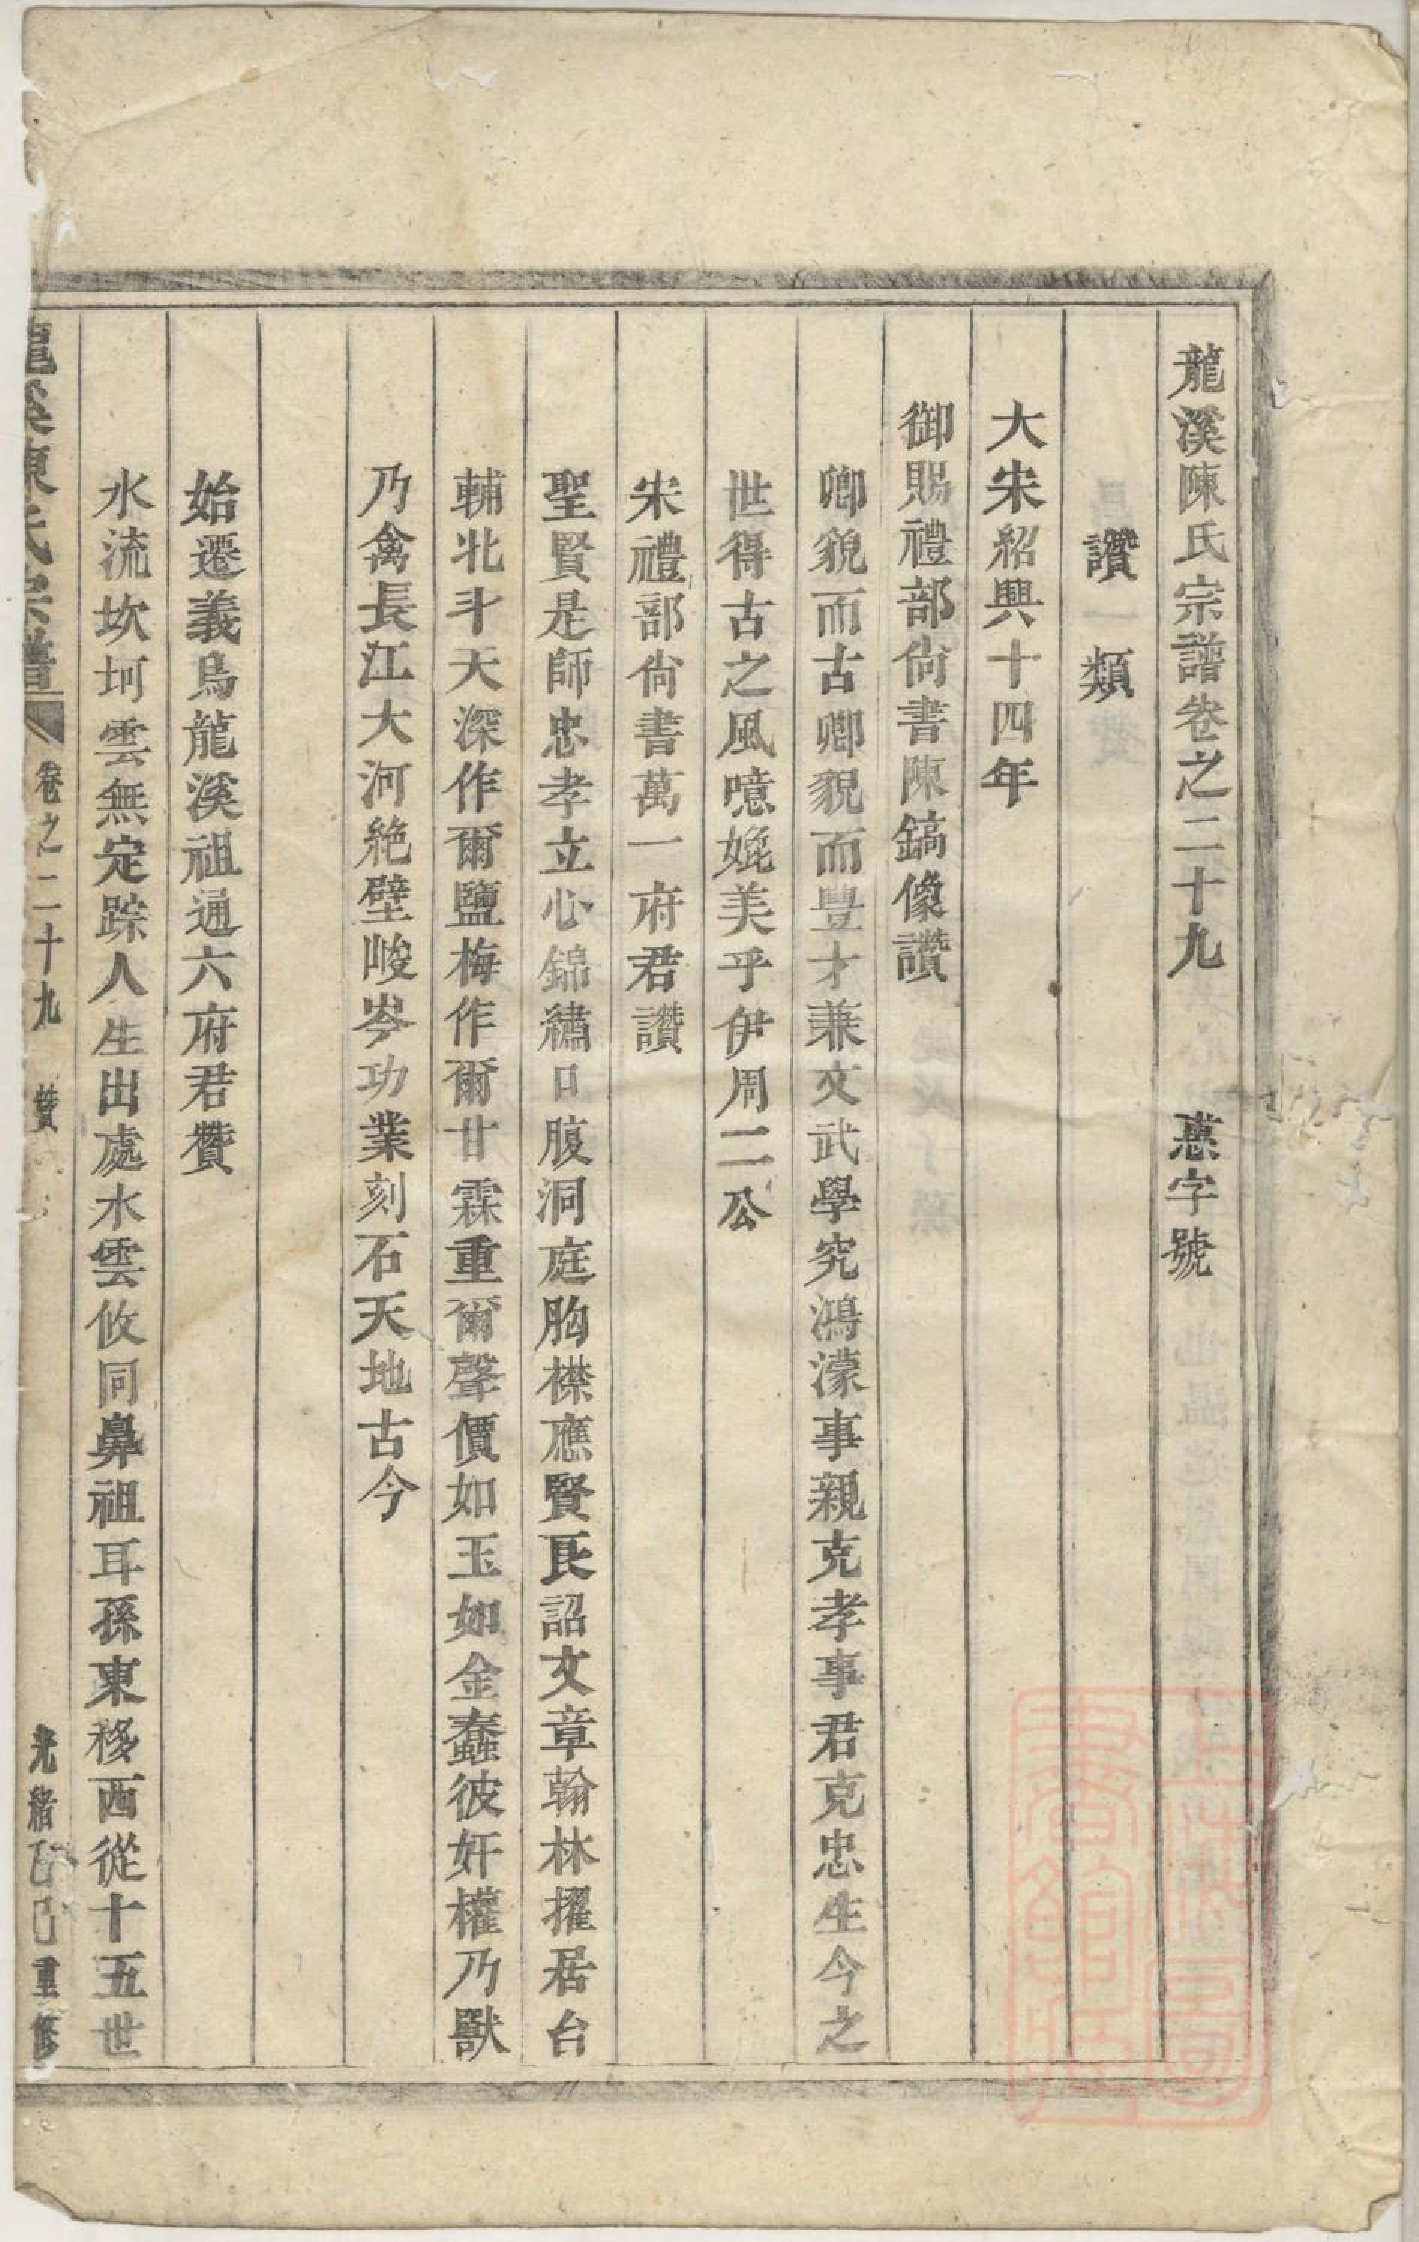 龍溪陳氏宗譜卷之二十九 惪字號
讚一類
大宋紹興十四年
御賜禮部尙書陳鎬像讚
卿貌而古卿貌而豊才兼文武學究鴻濛事親克孝事君克忠生今之
世得古之風噫媲美乎伊周二公
宋禮部尙書萬一府君讚
聖賢是師忠孝立心錦繡口腹洞庭胸襟應賢良詔文章翰林擢居台
輔北斗天深作爾鹽梅作爾甘霖重爾聲價如玉如金蠢彼奸權乃獸
乃禽長江大河絶壁峻岑功業刻石天地古今
始遷義烏龍溪祖通六府君贊
水流坎坷雲無定踪人生出處水雲攸同鼻祖耳孫東移西從十五世
龍溪陳氏宗譜 卷之二十九 贊 光緒乙巳重修